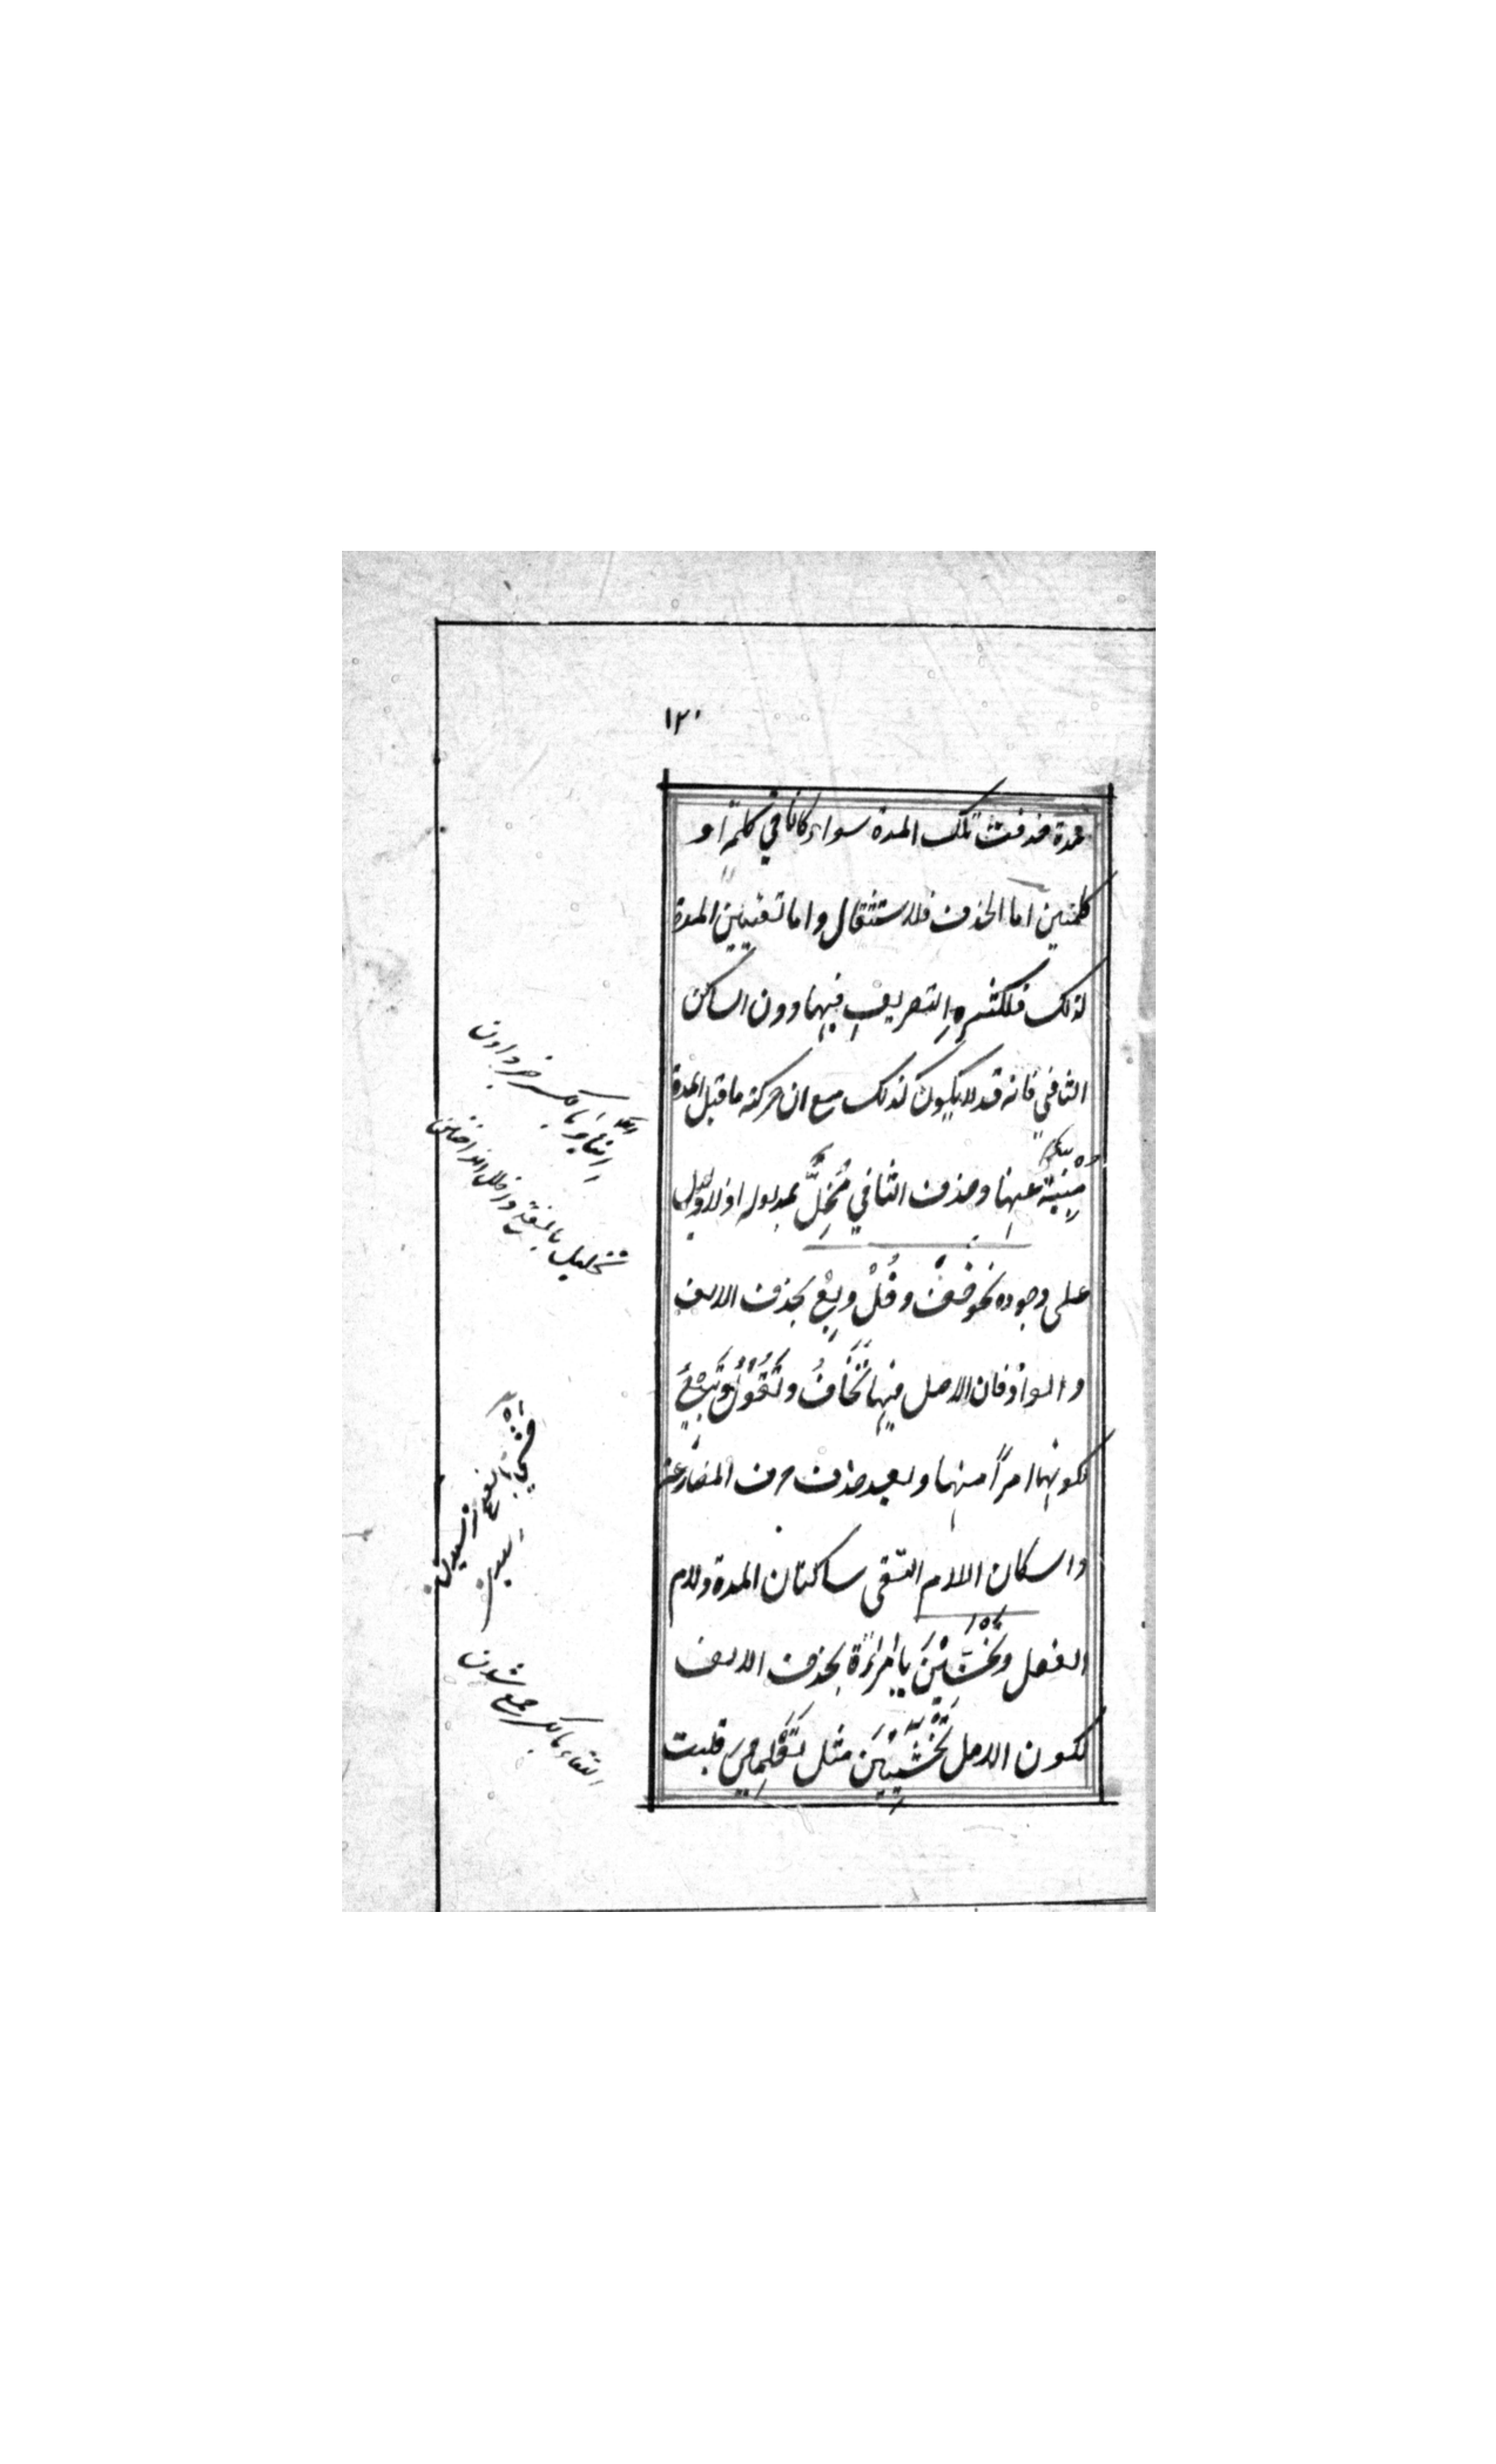 ١٢٠
مدة حذفت تلك المدة سواء كانا في كلمة او
كلمتين اما الحذف فللاستثقال واما تعيين المدة
لذلك فلكثرة التصريف فيها دون الساكن
الثاني فانه قد لا يكون كذلك مع ان حركة ما قبل المدة
مُنبِئة عنها وحذف الثاني مُخِلٌّ بمدلوله اذ لا دليل
على وجوده نحو خَفْ وقُلْ وبِعْ بحذف الالف
والواو فان الاصل فيها تَخَافُ وتَقُوْلُ وتَبِيْعُ
لكونها امراً منها وبعد حذف حرف المضارعة
واسكان اللام التقى ساكنان المدة ولام
الفعل وتَخْشَيْنَ يا امراءة بحذف الالف
لكون الاصل تَخْشَيِيْنَ مثل تَعْلَمِيْنَ قلبت
انباء بالكسر خبر دادن
بالفتح
التقاء بالكسر جمع شدن